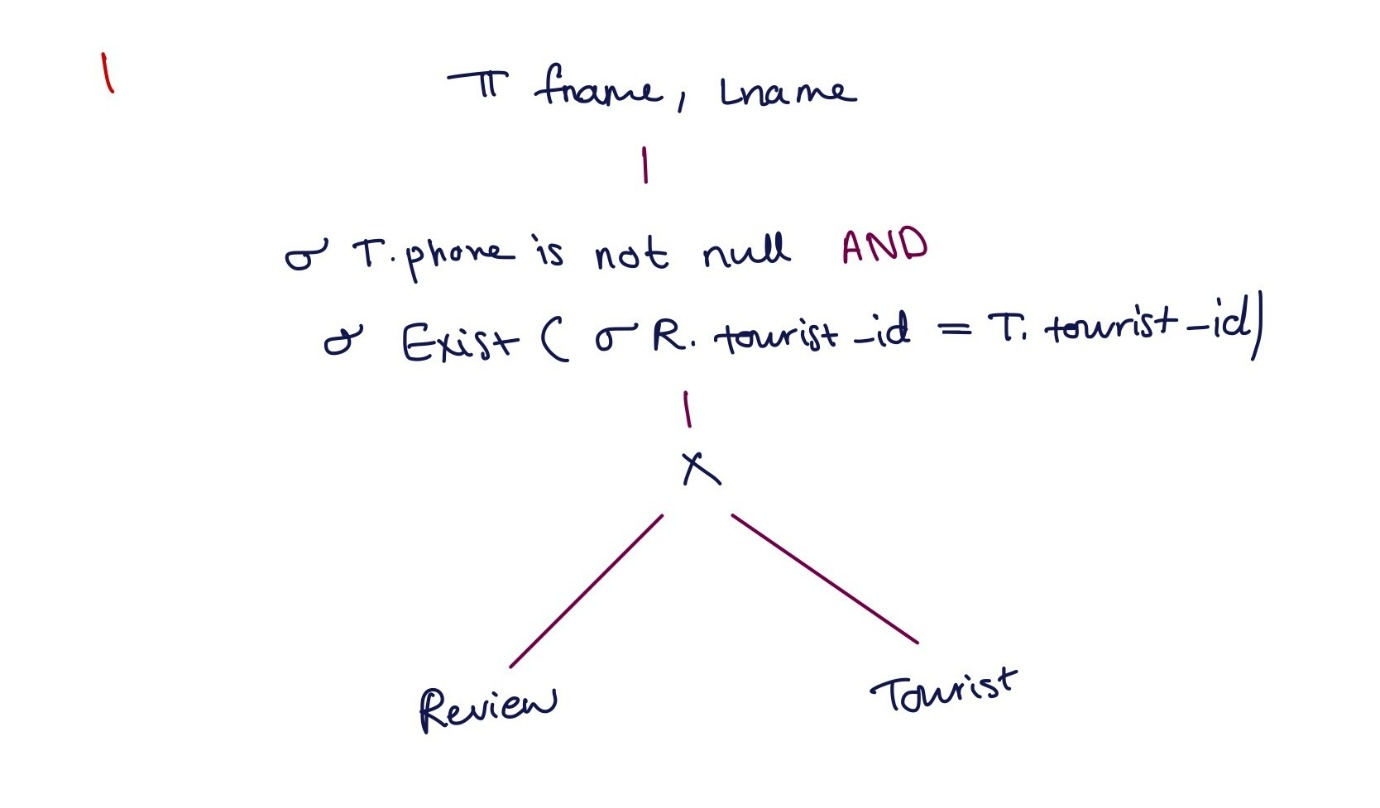 1
π fname, Lname
σ T.phone is not null AND
σ Exist ( σ R. tourist_id = T. tourist_id)
×
Review Tourist